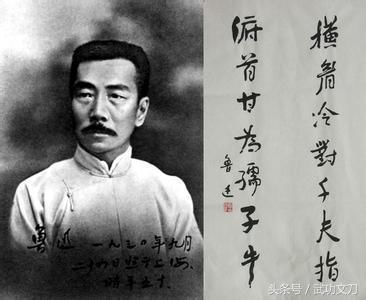 魯迅 一九三〇年九月
二十四日照于上海,
時年五十
橫眉冷對千夫指
俯首甘為孺子牛
魯迅
头条号 / 武功文刀